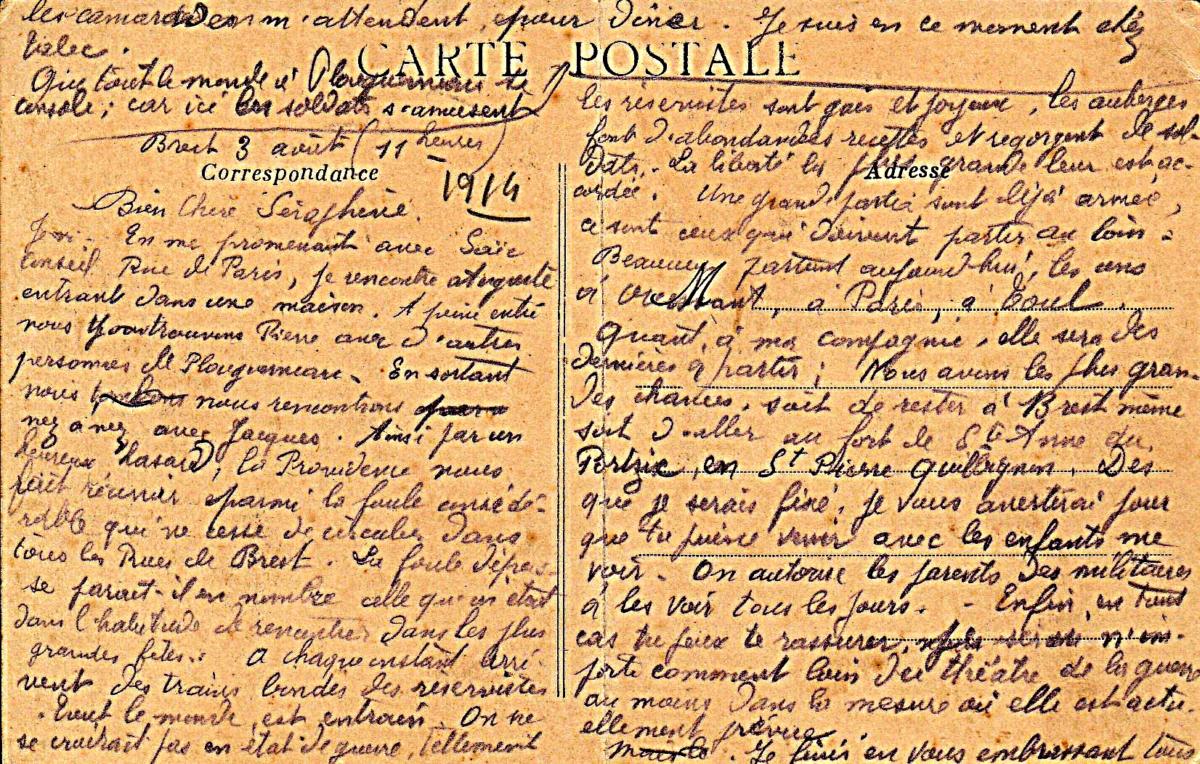 les camarades m'attendent, pour dîner. Je suis en ce moment chez
Jalec.
CARTE POSTALE
Que tout le monde à Plouguerneau se
console; car ici les soldats s'amusent
Brest 3 août (11 heures)
1914
Correspondance
Bien Chère Séraphine.
En me promenant avec
Conseil Rue de Paris, je rencontre Auguste
entrant dans une maison. A peine entré
nous y trouvons Pierre avec d'autres
personnes de Plouguerneau. En sortant
nous nous rencontrons
nez à nez avec Jacques. Ainsi par un
heureux hasard, la Providence nous
fait réunir parmi la foule considé-
rable qui ne cesse de circuler dans
tous les Rues de Brest. La foule dépas-
se parait-il en nombre celle qu'on était
dans l'habitude de rencontrer dans les plus
grandes fêtes. A chaque instant arri-
vent des trains bondés des réservistes
Tout le monde est entrain. On ne
se croirait pas en état de guerre, tellement
les réservistes sont gais et joyeux, les auberges
font d'abondantes recettes et regorgent de sol
dats. La liberté la plus grande leur est ac-
cordée. Une grande partie sont déjà armée,
Adresse
ce sont ceux qui doivent partir au loin.
Beaucoup partent aujourd'hui, les uns
à Ouessant, à Paris, à Toul.
Quant à ma compagnie, elle sera des
dernières à partir; Nous avons les plus gran-
des chances, soit de rester à Brest même
soit d'aller au fort de Ste Anne du
Portzic, en St Pierre Quilbignon. Dès
que je serais fixé, je vous avertirai pour
que tu puisse venir avec les enfants me
voir. On autorise les parents des militaires
à les voir tous les jours. - Enfin, en tout
cas tu peux te rassurer, n'im-
porte comment loin du théâtre de la guerre
au moins dans la mesure où elle est actu-
ellement prévue.
Je finis en vous embrassant tous